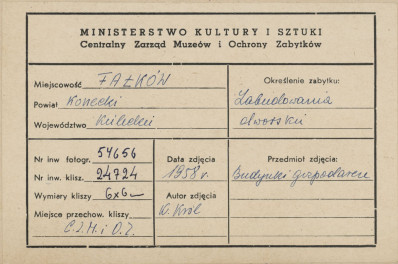 MINISTERSTWO KULTURY I SZTUKI
Centralny Zarząd Muzeów i Ochrony Zabytków
Miejscowość FAŁKÓW
Powiat Konecki
Województwo Kielecki
Określenie zabytku:
Zabudowania
dworskie
Nr inw. fotogr. 54656
Nr inw. klisz. 24724
Wymiary kliszy 6x6
Miejsce przechow. kliszy
C.Z.M. i O.Z.
Data zdjęcia
1958 r.
Autor zdjęcia
K. Król
Przedmiot zdjęcia:
Budynki gospodarcze